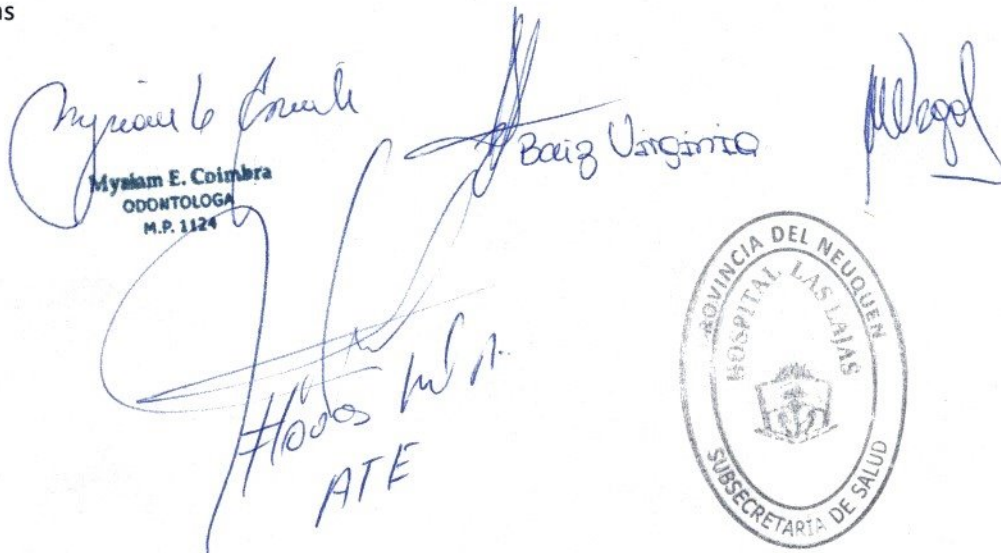 as
Myriam E. Coimbra
ODONTOLOGA
M.P. 1124
Baiz Virginia
ATE
PROVINCIA DEL NEUQUEN
HOSPITAL LAS LAJAS
SUBSECRETARÍA DE SALUD